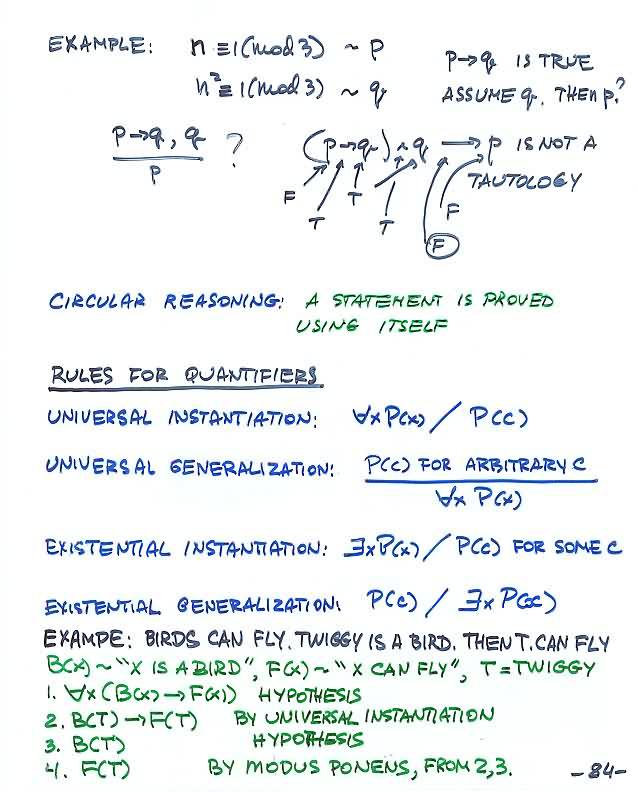 EXAMPLE: n ≡ 1 (mod 3) ~ p
n² ≡ 1 (mod 3) ~ q
p→q IS TRUE
ASSUME q. THEN p?
p→q, q
p
?
(p→q) ∧ q → p IS NOT A
TAUTOLOGY
F T T T F F
CIRCULAR REASONING: A STATEMENT IS PROVED
USING ITSELF
RULES FOR QUANTIFIERS
UNIVERSAL INSTANTIATION: ∀x P(x) / P(c)
UNIVERSAL GENERALIZATION: P(c) FOR ARBITRARY C
∀x P(x)
EXISTENTIAL INSTANTIATION: ∃x P(x) / P(c) FOR SOME C
EXISTENTIAL GENERALIZATION: P(c) / ∃x P(x)
EXAMPE: BIRDS CAN FLY. TWIGGY IS A BIRD. THEN T. CAN FLY
B(x) ~ "X IS A BIRD", F(x) ~ "X CAN FLY", T = TWIGGY
1. ∀x (B(x) → F(x)) HYPOTHESIS
2. B(T) → F(T) BY UNIVERSAL INSTANTIATION
3. B(T) HYPOTHESIS
4. F(T) BY MODUS PONENS, FROM 2,3.
-84-